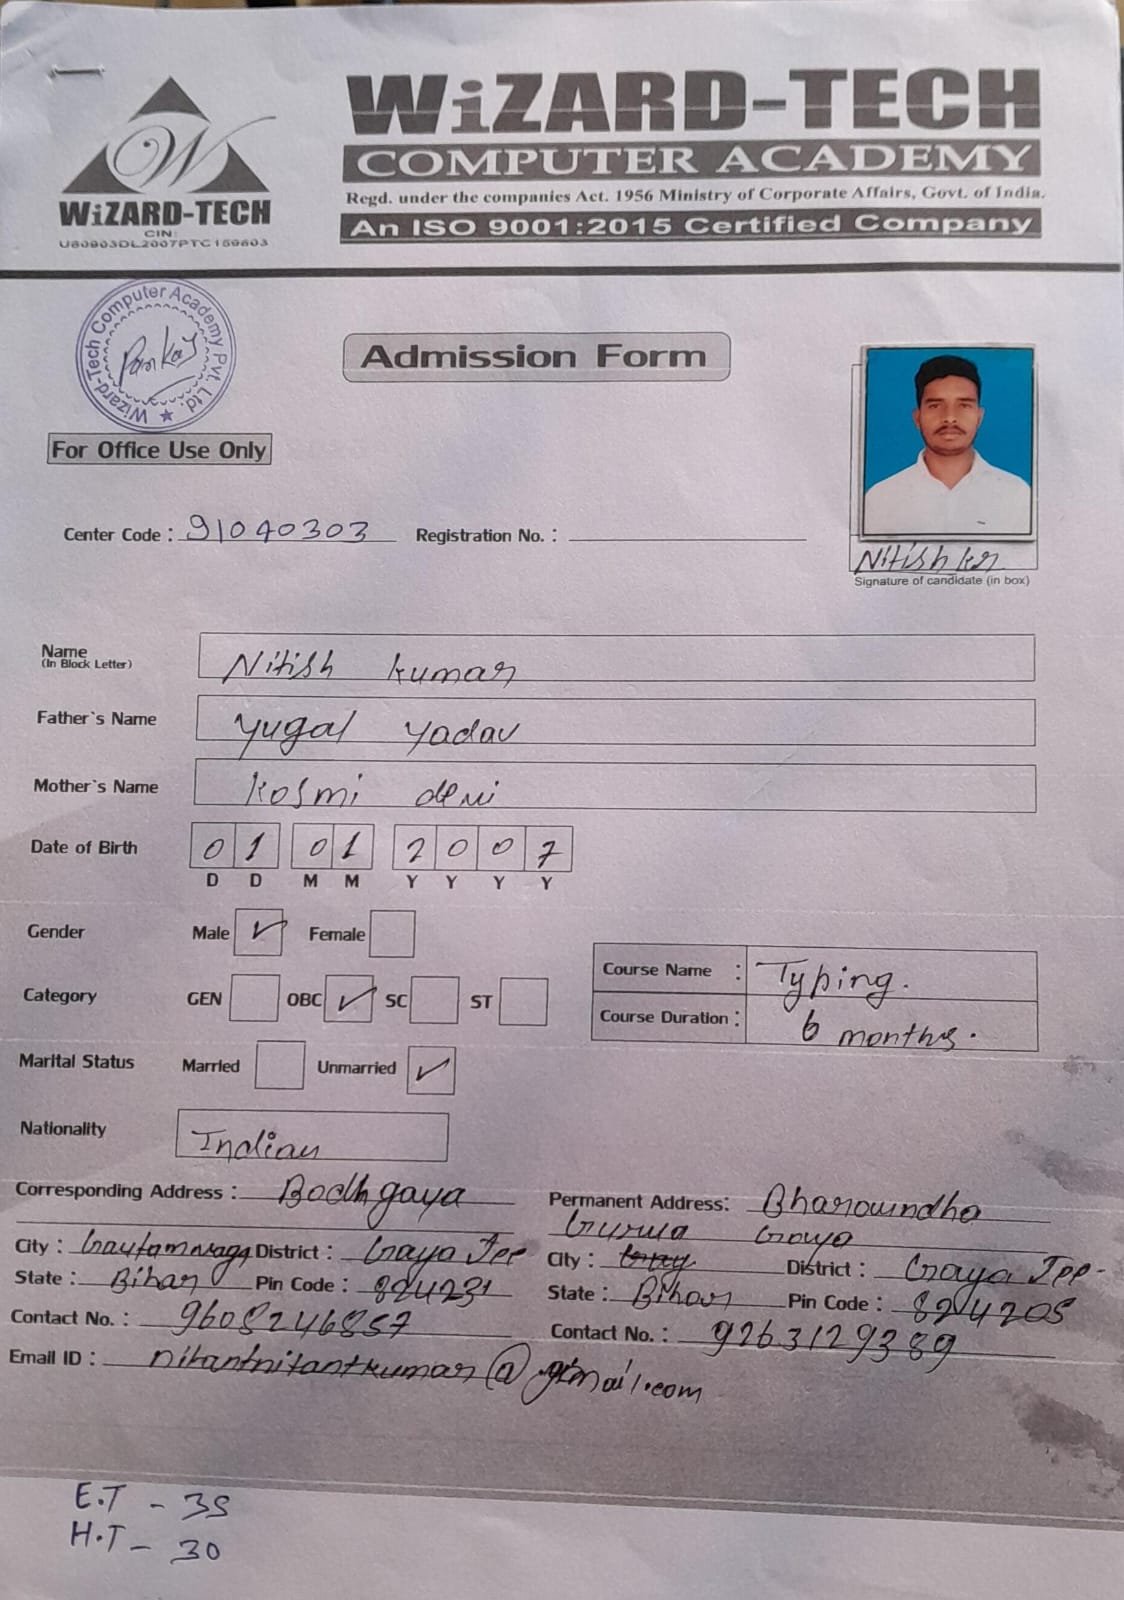 WiZARD-TECH
COMPUTER ACADEMY
Regd. under the companies Act. 1956 Ministry of Corporate Affairs, Govt. of India.
An ISO 9001:2015 Certified Company
W
WiZARD-TECH
CIN:
U80903DL2007PTC159603
Wizard-Tech Computer Academy Pvt. Ltd.
Pankaj
Admission Form
For Office Use Only
Center Code : 91040303 Registration No. :
Nitish kr
Signature of candidate (in box)
Name Nitish kumar
(In Block Letter)
Father`s Name Yugal Yadav
Mother`s Name Kosmi devi
Date of Birth 01 01 2007
D D M M Y Y Y Y
Gender Male ✓ Female
Category GEN OBC ✓ SC ST
Course Name : Typing.
Course Duration : 6 months.
Marital Status Married Unmarried ✓
Nationality Indian
Corresponding Address : Bodhgaya
Permanent Address: Bharoundha
Gurua Gaya
City : District : Gaya
State : Bihar Pin Code : 824231
City : District : Gaya
State : Bihar Pin Code : 824205
Contact No. : 9608246857
Contact No. : 9263129389
Email ID : nitantnitantkumar@gmail.com
E.T - 35
H.T - 30